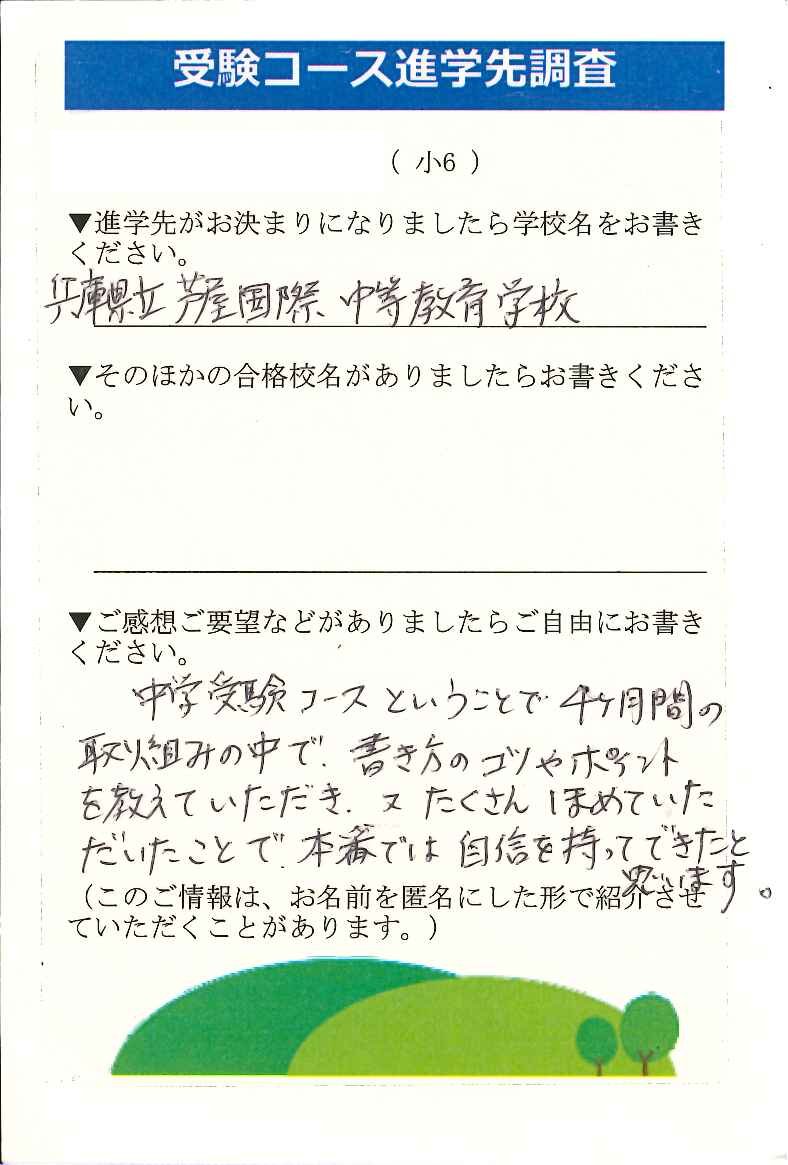 受験コース進学先調査
( 小6 )
▼進学先がお決まりになりましたら学校名をお書き
ください。
兵庫県立芦屋国際中等教育学校
▼そのほかの合格校名がありましたらお書きくださ
い。
▼ご感想ご要望などがありましたらご自由にお書き
ください。
中学受験コースということで4ヶ月間の
取り組みの中で、書き方のコツやポイント
を教えていただき、又たくさんほめていた
だいたことで、本番では自信を持ってできたと
思います。
（このご情報は、お名前を匿名にした形で紹介させ
ていただくことがあります。）